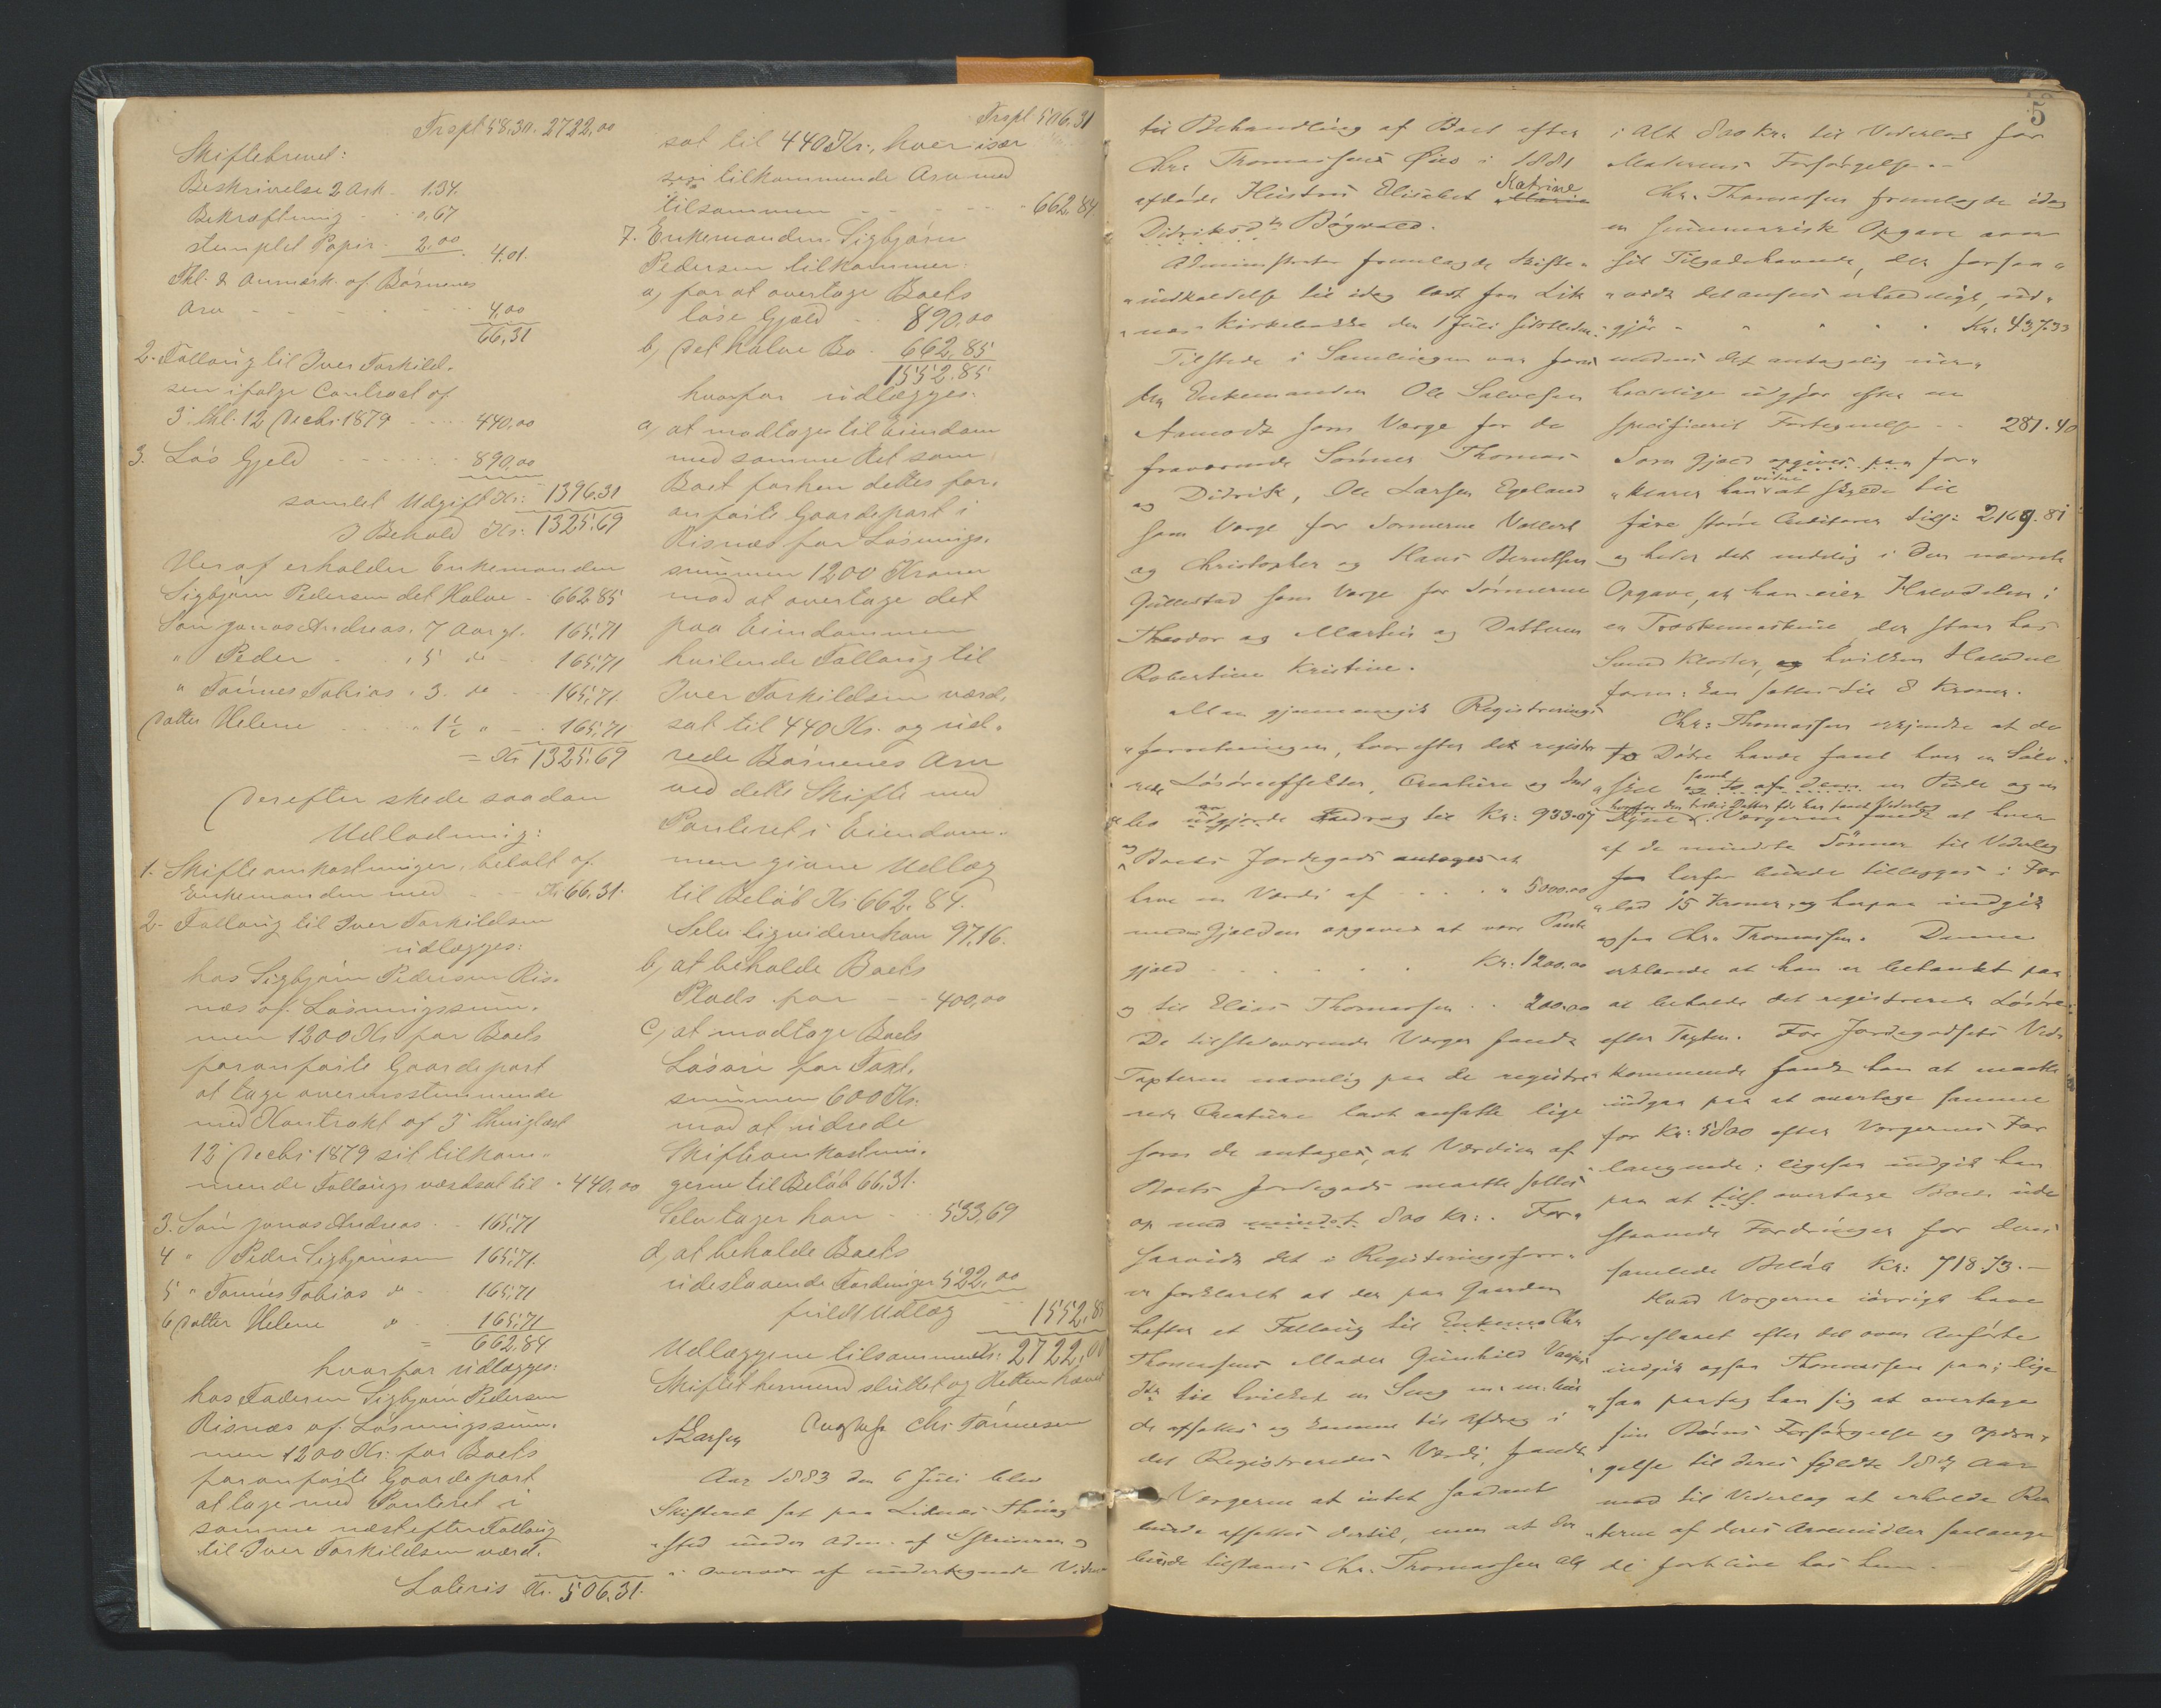 Trspt 58,30. 2722,00
Skiftebrevet:
Beskrivelse 2 Ark - 1.34.
Bekræftning - - 0,67
stemplet Papir - 2.00 4.01.
Thl. & Anmærk. af Børnenes
Arv - - - - 4,00
66,31
2. Follaug til Iver Torkild-
sen ifølge Contract af
3 thl. 12 Decbr 1879 - - - 440,00
3. Løs Gjeld - - - 890,00
samlet Udgift Kr: 1396.31
I Behold Kr: 1325,69
Heraf erholder Enkemanden
Sigbjørn Pedersen det Halve - 662 85
Søn Jonas Andreas, 7 Aar gl. 165,71
" Peder - " 5 do - 165,71
" Tønnes Tobias " 3. do - 165,71.
Datter Helene - " 1½ " - 165,71
= Kr 1325,69
Derefter skede saadan
Udlodning:
1. Skifteomkostninger, betalt af
Enkemanden med - - Kr 66,31.
2. Follaug til Iver Torkildsen
udlægges:
hos Sigbjørn Pedersen Ris-
næs af Løsningssum-
men 1200 Kr for Boets
foranførte Gaardepart
at tage overensstemmende
med Kontrakt af 3 thinglæst
12 Decbr 1879 sit tilkom-
mende Follaug værdsat til - 440,00
3. Søn Jonas Andreas - - 165,71
4 " Peder Sigbjørnsen 165,71.
5 " Tønnes Tobias do - 165,71
6 Datter Helene do - 165,71
= 662,84
hvorfor udlægges:
hos Faderen Sigbjørn Pedersen
Risnæs af Løsningssum-
men 1200 Kr: for Boets
foranførte Gaardepart
at tage med Panteret i
samme næst efter Follaug
til Iver Torkildsen værd-
Lateris Kr. 506.31.
Trspt 506,31
sat til 440 Kr., hver især
sin tilkommende Arv med
tilsammen - - - 662,84
7. Enkemanden Sigbjørn
Pedersen tilkommer:
a, for at overtage Boets
løse Gjæld - 890,00
b, Det halve Bo - 662,85
1552.85
hvorfor udlægges:
a, at modtage til Eiendom
med samme Ret som
Boet forhen dettes for-
anførte Gaardepart i
Risnæs for Løsnings-
summen 1200 Kroner
mod at overtage det
paa Eiendommen
hvilende Follaug til
Iver Torkildsen værd-
sat til 440 Kr. og ud-
rede Børnenes Arv
ved dette Skifte med
Panteret i Eiendom-
men givne Udlæg
til Beløb Kr 662,84.
Selv liqviderer han 97,16.
b, at beholde Boets
Plads for - - 400,00
c, at modtage Boets
Løsøre for Taxt-
summen 600 Kr.
mod at udrede
Skifteomkostnin-
gerne til Beløb 66,31.
Selv tager han - - 533,69
d, at beholde Boets
udestaaende Fordringer 522,00
fuldt Udlæg - - 1552,85
Udlæggene tilsammen Kr: 2722,00
Skiftet hermed sluttet og Retten hævet
ALarsen Chr Tønnesen
Aar 1883 den 6 Juli blev
Skifteret sat paa Liknes Thing-
sted under Adm. af Skriveren og
i Overvær af undertegnede Vidner
5
til Behandling af Boet efter
Chr. Thomassens Øies i 1881
afdøde Hustru Elisabet Marie Katrine
Didriksdtr Bøgwald.
Administrator fremlagde Skifte-
indkaldelse til idag læst fra Lik-
nes Kirkebakke den 1 Juli sidstleden.
Tilstede i Samlingen var foru-
den Enkemanden Ole Salvesen
Aamodt som Værge for de
fraværende Sønner Thomas
og Didrik, Ole Larsen Egeland
som Værge for Sønnerne Vollert
og Christopher og Hans Berntsen
Gullestad som Værge for Sønnerne
Theodor og Martin og Datteren
Robertine Kristine.
Man gjennemgik Registrerings-
forretningen, hvorefter det registre-
rede Løsøreeffekter, Creature og Ind-
bo udgjorde Fradrag til Kr: 933.07
og Boets Jordegods antages at
have en Værdi af - - - " 5000.00
medens Gjælden opgaves at være Pante-
gjæld - - - Kr: 1200.00
og til Elias Thomassen - - 200.00
De tilstedeværende Værger fandt
Taxterne navnlig paa de registre-
rede Creature lavt ansatte lige
som de antager, at Værdien af
Boets Jordegods maatte sættes
op med mindst 800 Kr:. For-
saavidt det i Registreringsforr.
er forklaret at der paa Gaarden
hefter et Follaug til Enkem. Chr
Thomassens Moder Gunhild
dtr til hvilket en Seng m. m. bur-
de afsættes og komme til Afdrag i
det Registreredes Værdi, fandt
Værgerne at intet saadant
burde afsættes dertil, men at der
burde tilstaaes Chr. Thomassen alt
i Alt 800 Kr: til Vederlag for
Moderens Forsørgelse. -
Chr. Thomassen fremlagde idag
en summarisk Opgave over
sit Tilgodehavende, der forsaa-
vidt det ansees erholdeligt, ud-
gjør - - - - Kr: 437.33
medens det antagelig uer-
holdelige udgjør efter en
specificeret Fortegnelse - - 281.40
Som Gjæld opgives paa for-
klarer han vidre at skylde til
fire større Creditorer tils: 2169.81
og heder det endelig i den nævnte
Opgave, at han eier Halvdelen i
en Tærskemaskine, der staar hos
Svend Kloster, og hvilken Halvdel
form: kan sættes til 8 Kroner.
Chr: Thomassen erkjendte at de
to Døtre havde faaet hver en Sølv-
skee samt og to af dem en Pude og en
Dyne. Værgerne fandt at hver
af de mindste Sønner til Vederlag
for herfor burde tillægges i For-
lod 15 Kroner, og herpaa indgik
ogsaa Chr. Thomassen. Denne
erklærede at han er betænkt paa
at beholde det registrerede Løsøre
efter Taxten. For Jordegodsets Ved-
kommende fandt han at maatte
indgaa paa at overtage samme
for Kr: 5800 efter Værgernes For-
langende; ligesaa indgik han
paa at tils. overtage Boets ude-
staaende Fordringer for deres
samlede Beløb Kr: 718.73. -
Hvad Værgerne iøvrigt have
foreslaaet efter det oven Anførte
indgik ogsaa Thomassen paa; lige-
saa paatog han sig at overtage
sine Børns Forsørgelse og Opdra-
gelse til deres fyldte 18de Aar
mod til Vederlag at erholde Ren-
terne af deres Arvemidler saalænge
de forblive hos ham. -